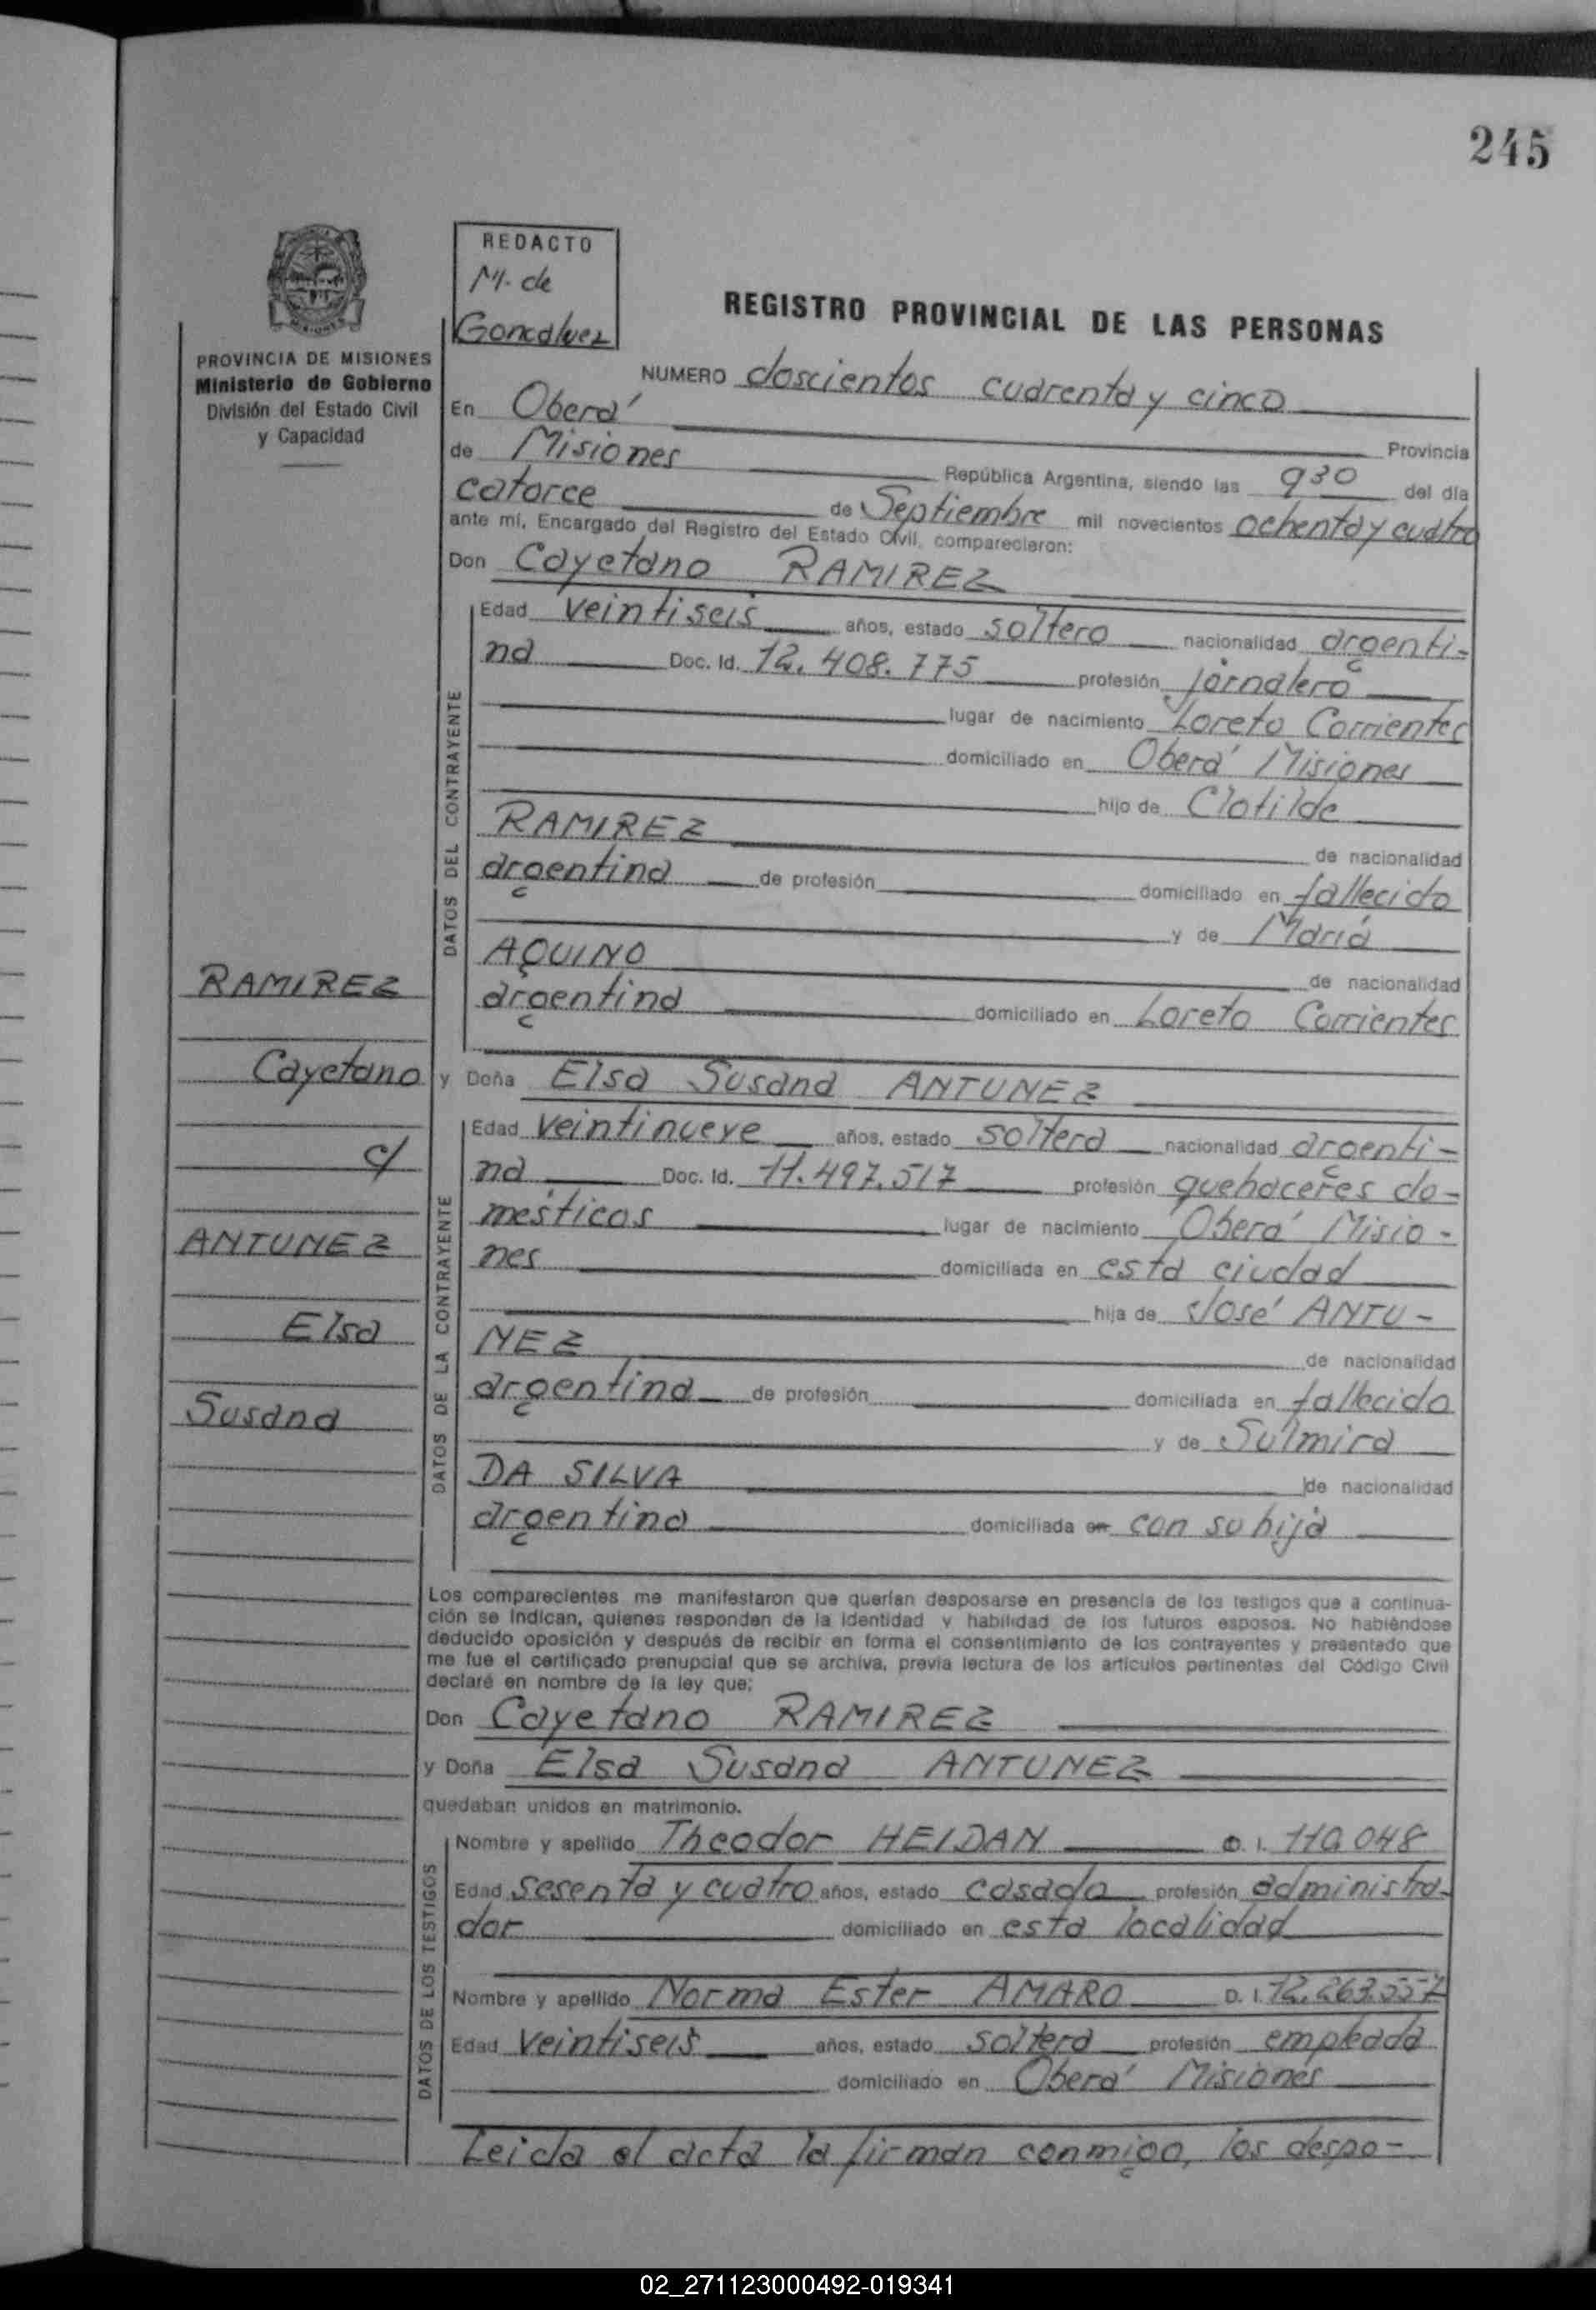 245
REDACTO
M. de
Goncalvez
REGISTRO PROVINCIAL DE LAS PERSONAS
PROVINCIA DE MISIONES
Ministerio de Gobierno
División del Estado Civil
y Capacidad
NUMERO doscientos cuarenta y cinco
En Oberá Provincia
de Misiones República Argentina, siendo las 930 del día
catorce de Septiembre mil novecientos ochenta y cuatro
ante mí, Encargado del Registro del Estado Civil, comparecieron:
Don Cayetano RAMIREZ
DATOS DEL CONTRAYENTE
Edad veintiseis años, estado soltero nacionalidad argenti-
na Doc. Id. 12.408.775 profesión jornalero
lugar de nacimiento Loreto Corrientes
domiciliado en Oberá Misiones
hijo de Clotilde
RAMIREZ de nacionalidad
argentina de profesión domiciliado en fallecido
y de María
AQUINO de nacionalidad
argentina domiciliado en Loreto Corrientes
RAMIREZ
Cayetano
c/
ANTUNEZ
Elsa
Susana
y Doña Elsa Susana ANTUNEZ
DATOS DE LA CONTRAYENTE
Edad veintinueve años, estado soltera nacionalidad argenti-
na Doc. Id. 11.497.517 profesión quehaceres do-
mésticos lugar de nacimiento Oberá Misio-
nes domiciliada en esta ciudad
hija de José ANTU-
NEZ de nacionalidad
argentina de profesión domiciliada en fallecido
y de Sulmira
DA SILVA de nacionalidad
argentina domiciliada en con su hija
Los comparecientes me manifestaron que querían desposarse en presencia de los testigos que a continua-
ción se indican, quienes responden de la identidad y habilidad de los futuros esposos. No habiéndose
deducido oposición y después de recibir en forma el consentimiento de los contrayentes y presentado que
me fue el certificado prenupcial que se archiva, previa lectura de los artículos pertinentes del Código Civil
declaré en nombre de la ley que:
Don Cayetano RAMIREZ
y Doña Elsa Susana ANTUNEZ
quedaban unidos en matrimonio.
DATOS DE LOS TESTIGOS
Nombre y apellido Theodor HEIDAN D. I. 110.048
Edad sesenta y cuatro años, estado casado profesión administra-
dor domiciliado en esta localidad
Nombre y apellido Norma Ester AMARO D. I. 12.263.557
Edad veintiseis años, estado soltera profesión empleada
domiciliado en Oberá Misiones
Leida el acta la firman conmigo, los despo-
02_271123000492-019341